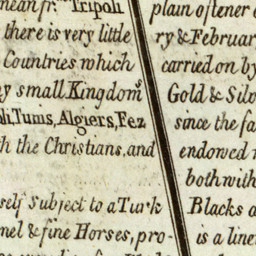 mean fr. Tripoli
there is very little
Countries which
y small Kingdoms
li, Tunis, Algiers, Fez
h the Christians, and
self Subject to a Turk
nel & fine Horses, pro-
plain oftener
ry & Februar
carried on by
Gold & Silv
since the fa
endowed
both with
Blacks a
is a line